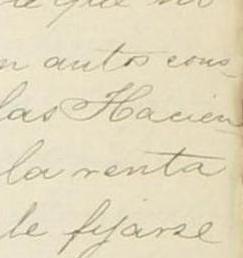 e que no
n autos cons-
las Hacien-
la renta
le fijarse